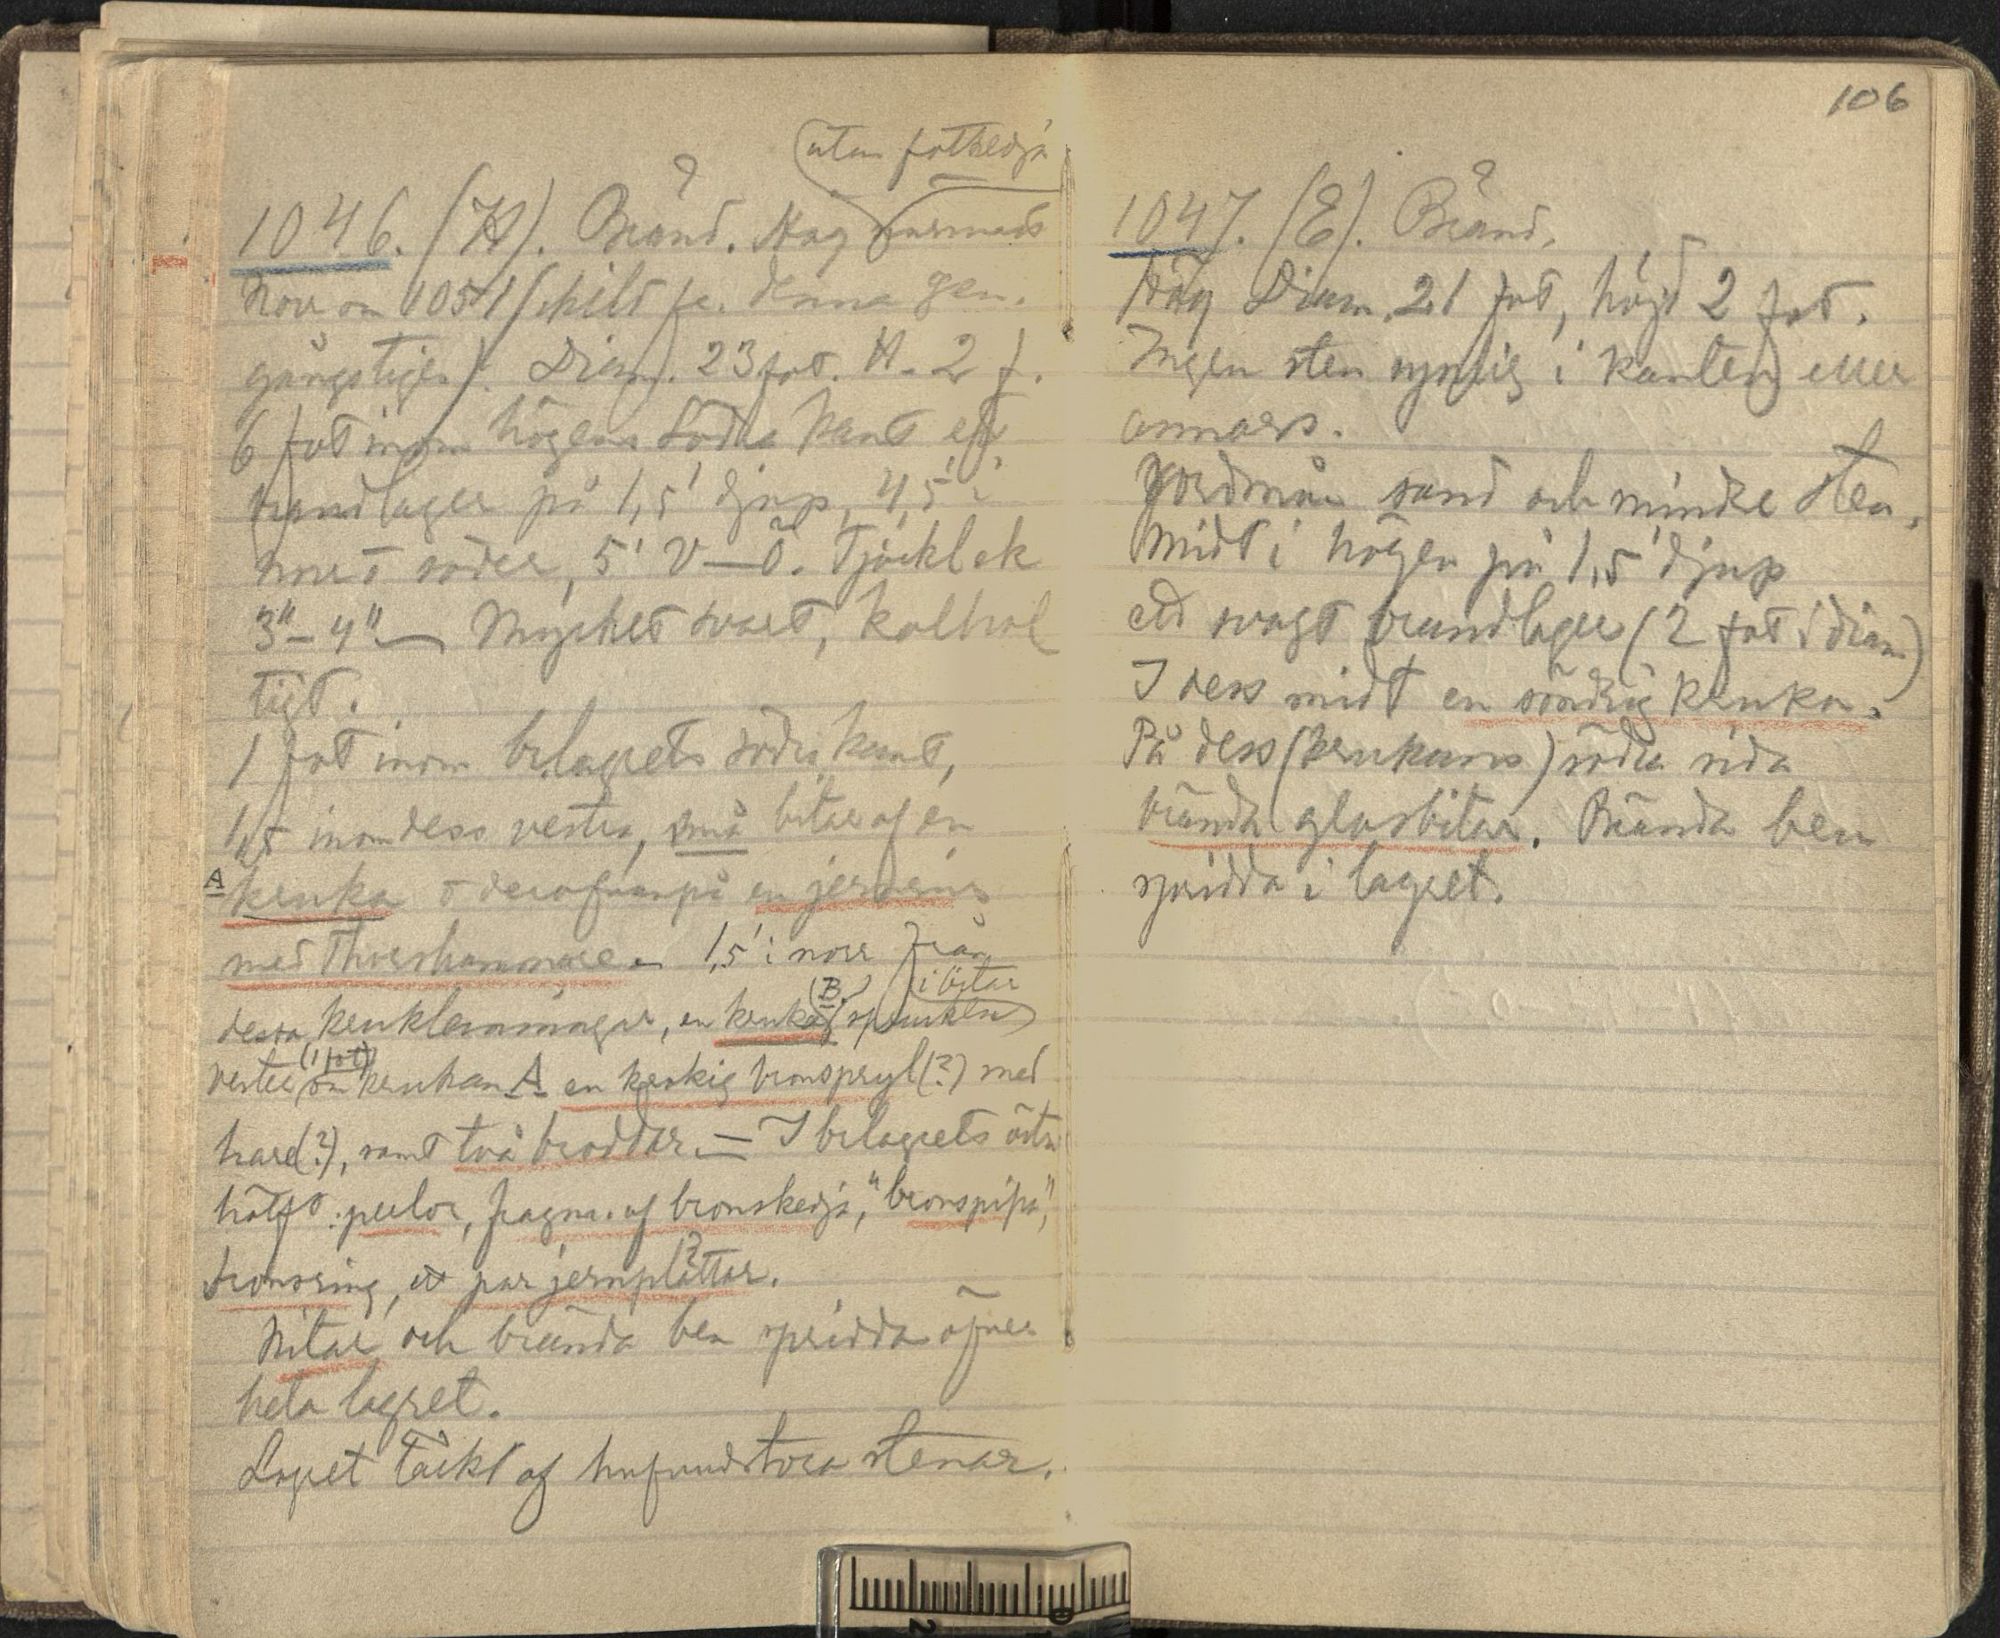 106
utan fotkedja
1046. (H). Bränd. Hög närmast
norr om 1051 (skild fr. denna gen.
gångstigen). Diam. 23 fot. H. 2 f.
6 fot inom högens södra kant ett
brandlager på 1,5' djup, 4,5' i
norr o söder, 5' V–Ö. Tjocklek
3"–4" – Mycket svart, kolhal
tigt.
1 fot inom br.lagrets södra kant,
1,5 inom dess vestra, små bitar af en
A kruka o derofvanpå en jernring
med Thorshammare. 1,5' i norr från
i bitar
dessa kruklemningar, en kruka (B.) sprucken
vester (1 fot) om krukan A en krokig bronspryl (?) med
hare (?), samt två broddar. – I br.lagrets östra
hälft: perlor, fragm. af bronskedja, "bronspipa",
bronsring, ett par jernplattar.
Nitar och brända ben spridda öfver
hela lagret.
Lagret täckt af hufvudstora stenar.
1047. (E). Bränd.
Hög Diam. 21 fot, höjd 2 fot.
Ingen sten synlig i kanten eller
annars.
Jordmån sand och mindre sten.
Midt i högen på 1,5' djup
ett svagt brandlager (2 fot i diam.)
I dess midt en söndrig kruka.
På dess (krukans) södra sida
brända glasbitar. Brända ben
spridda i lagret.